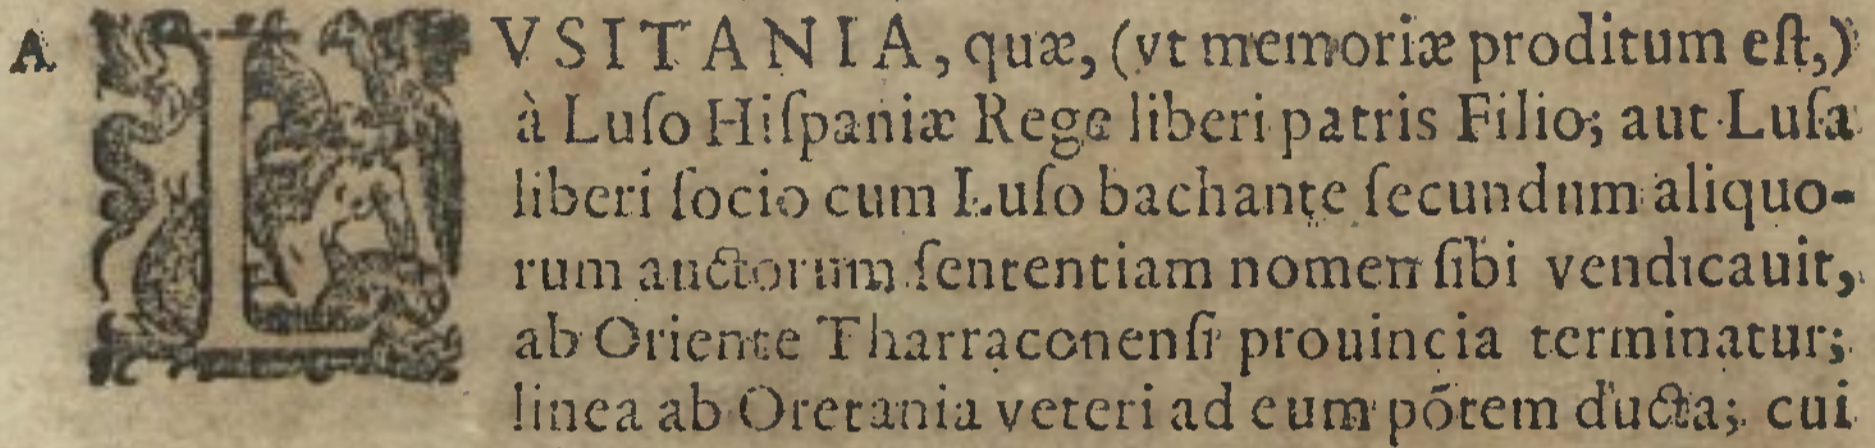 A LVSITANIA, quæ, (vt memoriæ proditum eſt,)
à Luſo Hiſpaniæ Rege liberi patris Filio; aut Luſa
liberi ſocio cum Luſo bachante ſecundum aliquo-
rum auctorum ſententiam nomen ſibi vendicauit,
ab Oriente Tharraconenſi prouincia terminatur;
linea ab Oretania veteri ad eum põtem ducta; cui